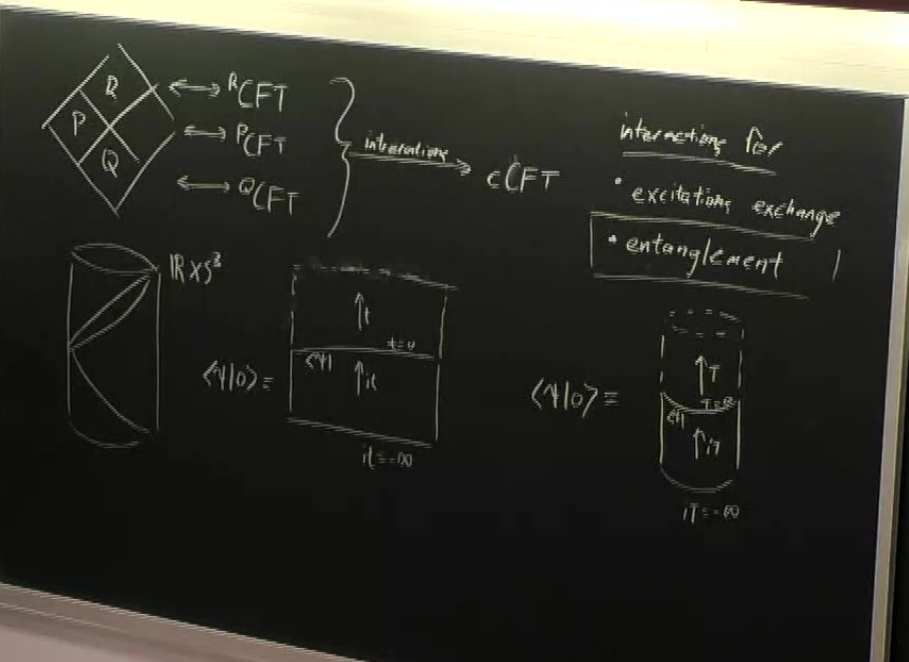 R ⟷ ᴿCFT
P ⟷ ᴾCFT
Q ⟷ ᵠCFT
interactions → cCFT
interactions for
• excitations exchange
• entanglement
ℝ×S³
⟨Ψ|0⟩ ≡
t
t=0
⟨Ψ|
it
it=-∞
⟨Ψ|0⟩ ≡
T
⟨Ψ|
iT
iT=-∞